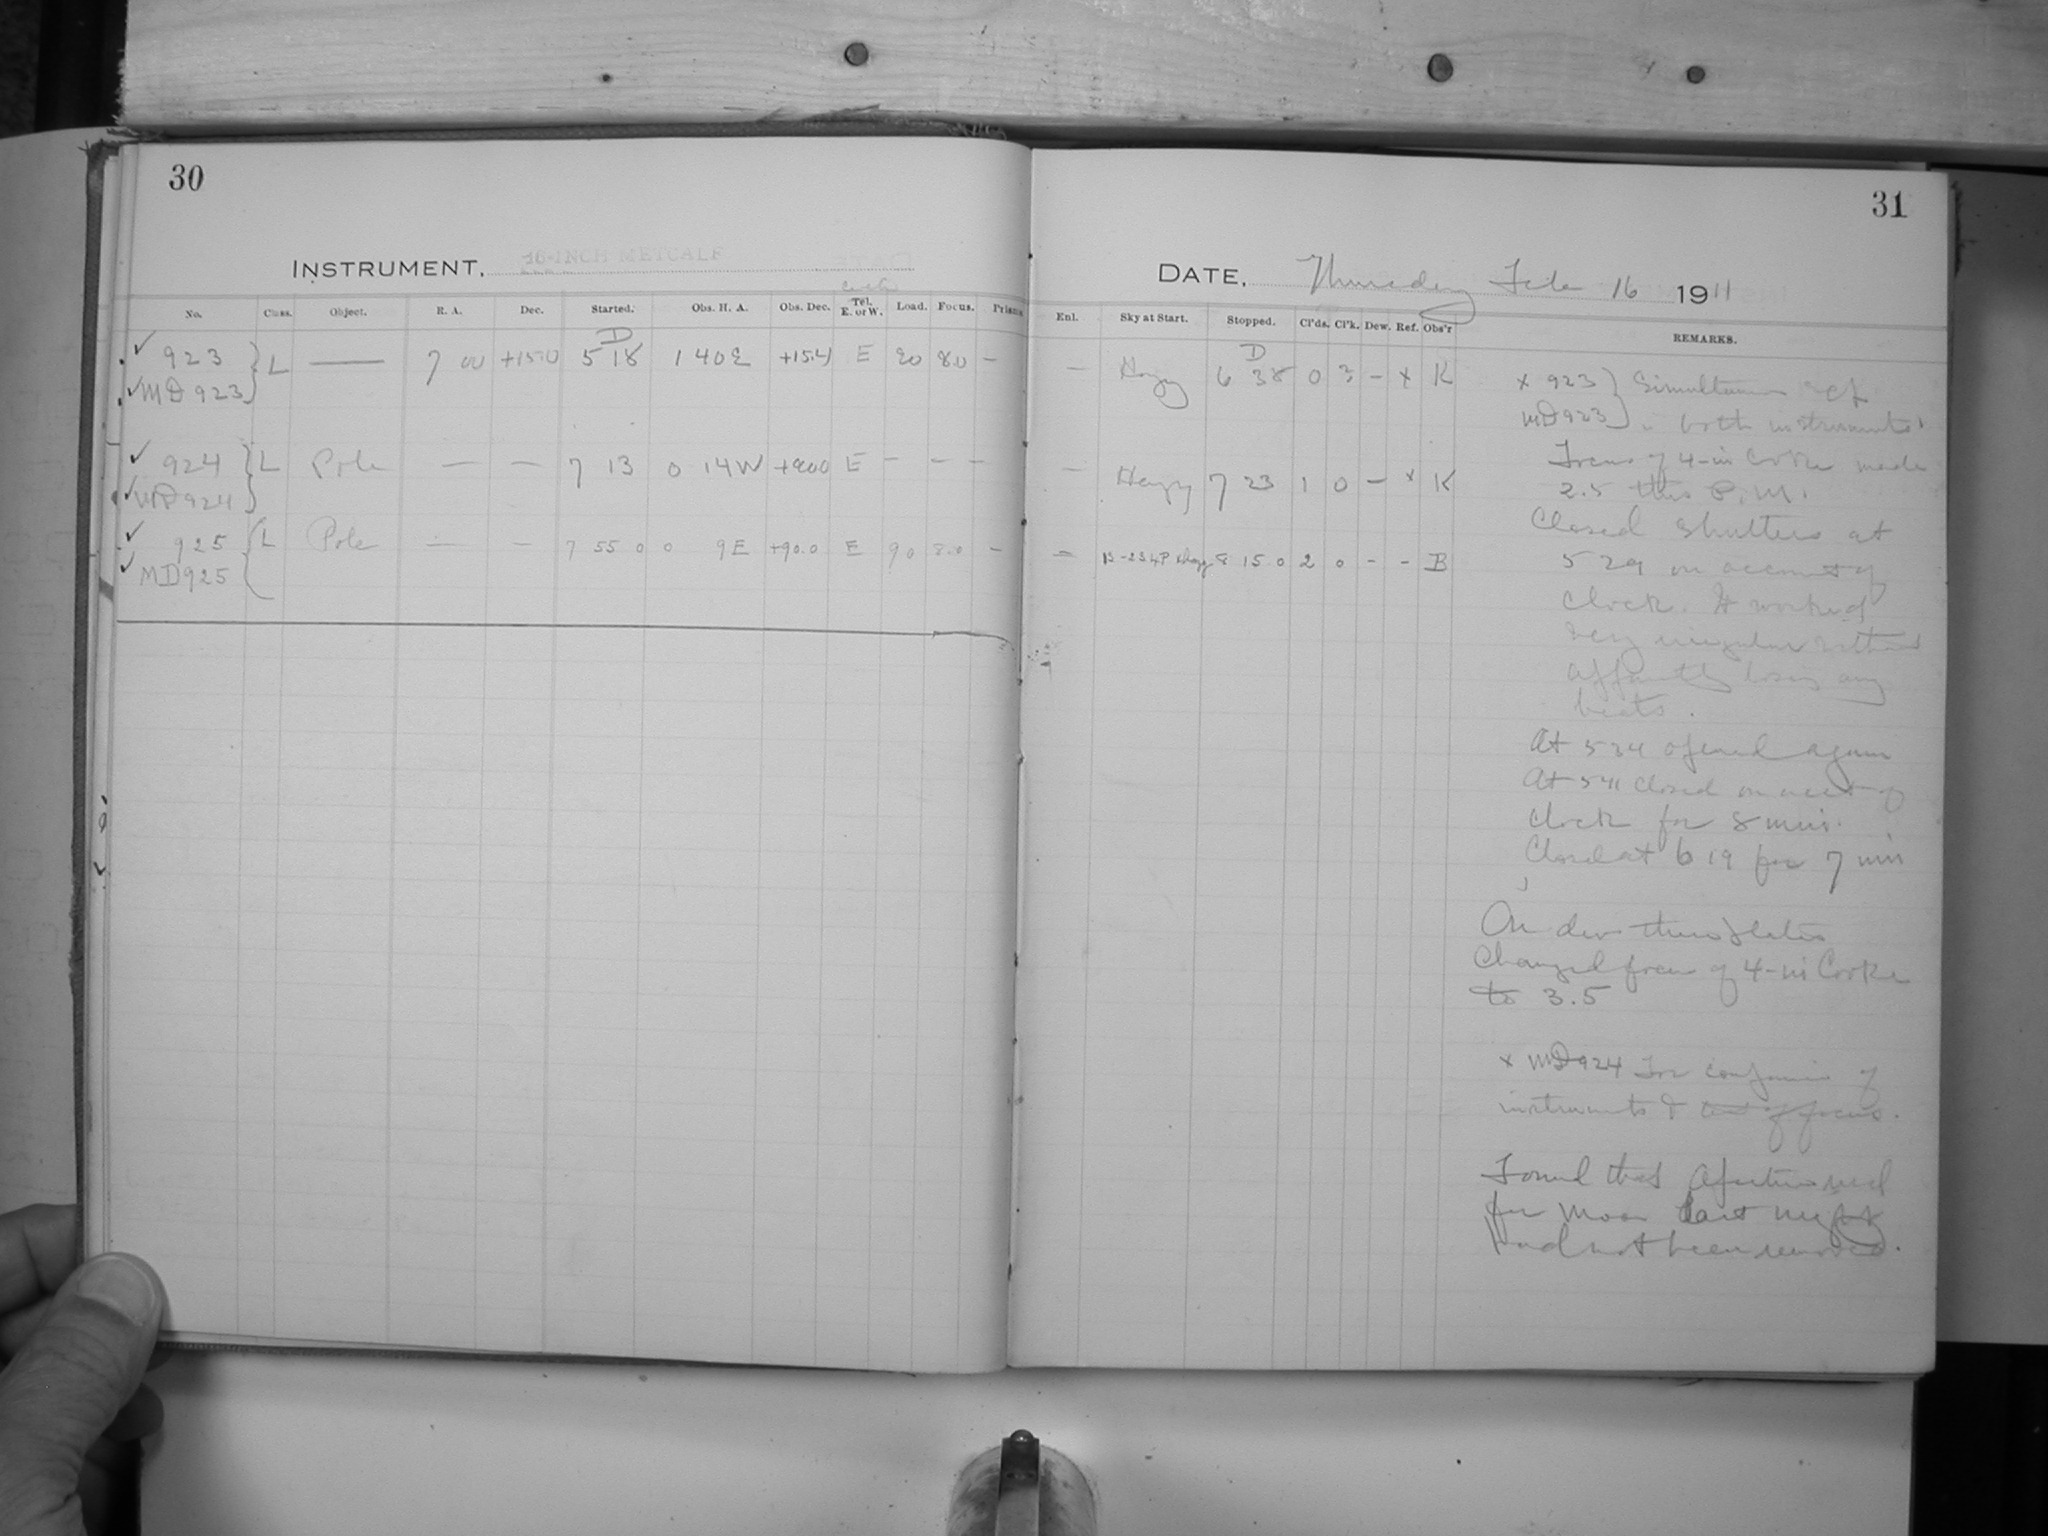 30
INSTRUMENT, 16-INCH METCALF
No. Class. Object. R. A. Dec. Started. Obs. H. A. Obs. Dec. Tel. E. or W. Load. Focus. Prism
923 L — 7 00 +15.0 D 5 18 1 40 E +15.4 E 90 8.0 —
MD 923
924 L Pole — — 7 13 0 14 W +90.0 E — — —
MD 924
925 L Pole — — 7 55 0 0 9 E +90.0 E 90 8.0 —
MD 925
31
DATE, Thursday Feb 16 1911
Enl. Sky at Start. Stopped. Cl'ds. Cl'k. Dew. Ref. Obs'r REMARKS.
— Hazy D 6 38 0 3 — x K
— Hazy 7 23 1 0 — x K
— Hazy 8 15.0 2 0 - - B
x 923 } Simultaneous
MD 923 } both instruments
Focus of 4-in Cooke made
2.5 this P.M.
Closed shutters at
5 29 on account of
clock. It worked
very irregular without
apparently losing any
beats.
At 5 34 opened again
At 5 41 closed on acct of
clock for 8 min.
Closed at 6 19 for 7 min
On dev these plates
changed focus of 4-in Cooke
to 3.5
x MD 924 For comparison of
instruments & test of focus.
Found that aperture used
for moon last night
had not been removed.